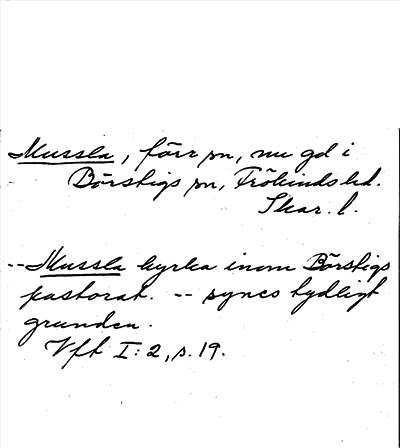 Mussla, förr sn, nu gd i
Börstigs sn, Frökinds hd.
Skar. l.
-- Mussla kyrka inom Börstigs
pastorat. -- synes tydligt
grunden.
Vft I:2, s. 19.